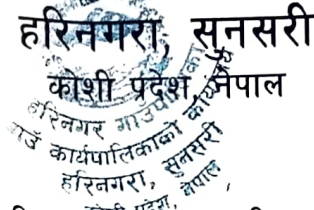 हरिनगरा, सुनसरी
कोशी प्रदेश, नेपाल
हरिनगर गाउँपालिका
गाउँ कार्यपालिकाको कार्यालय
हरिनगरा, सुनसरी
प्रदेश, नेपाल